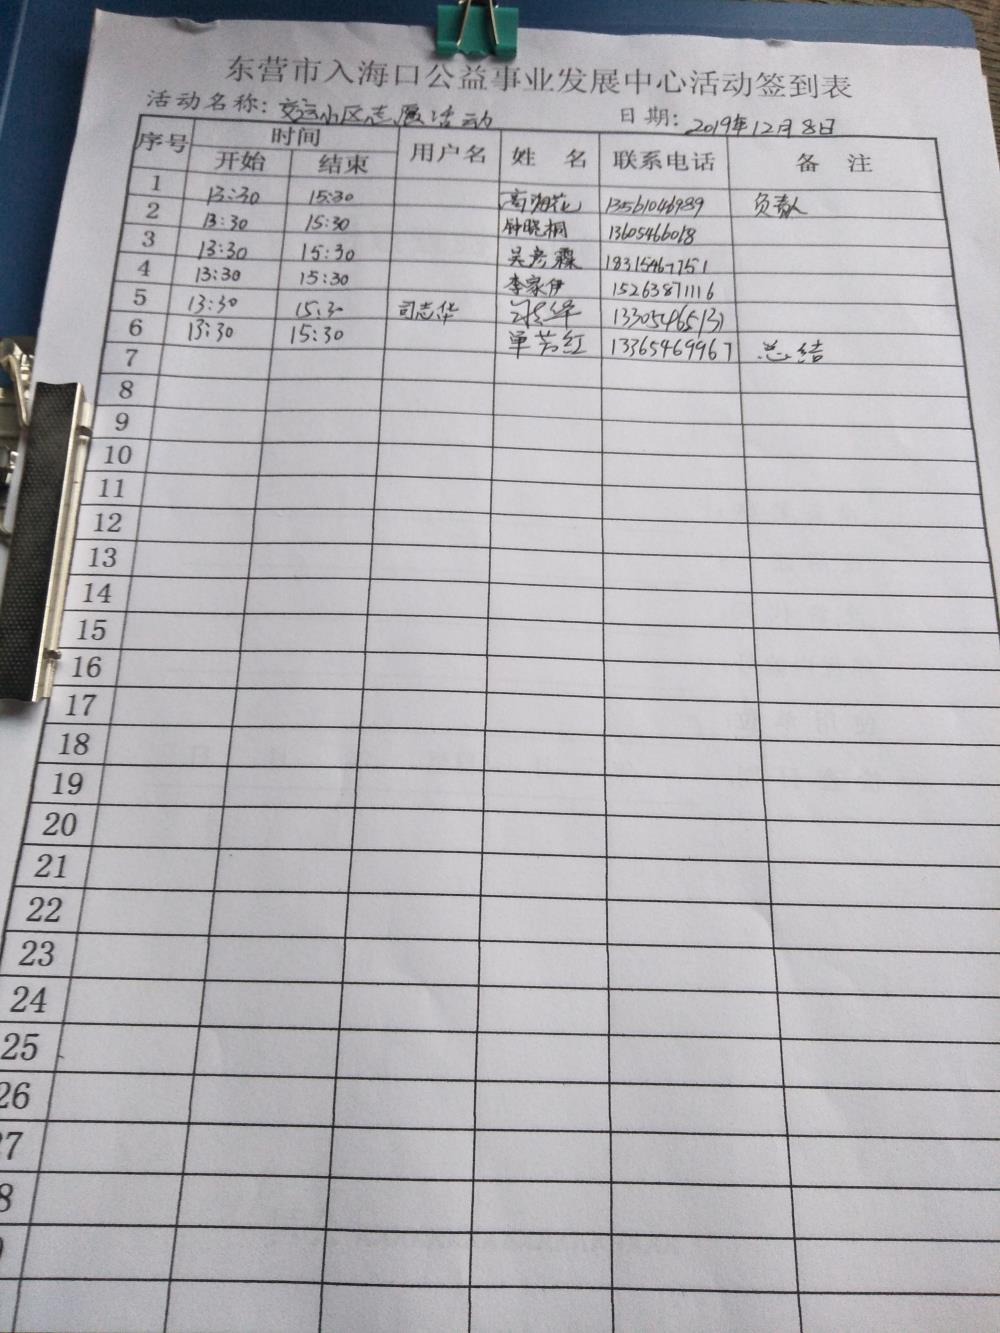 东营市入海口公益事业发展中心活动签到表
活动名称: 交运小区志愿活动 日期: 2019年12月8日
序号 时间 用户名 姓 名 联系电话 备 注
开始 结束
1 13:30 15:30 高湘花 13561046989 负责人
2 13:30 15:30 钟晓桐 13605466018
3 13:30 15:30 吴彦霖 18315467751
4 13:30 15:30 李家伊 15263871116
5 13:30 15:30 司志华 13305465131
6 13:30 15:30 单芳红 13365469967 总结
7
8
9
10
11
12
13
14
15
16
17
18
19
20
21
22
23
24
25
26
27
8